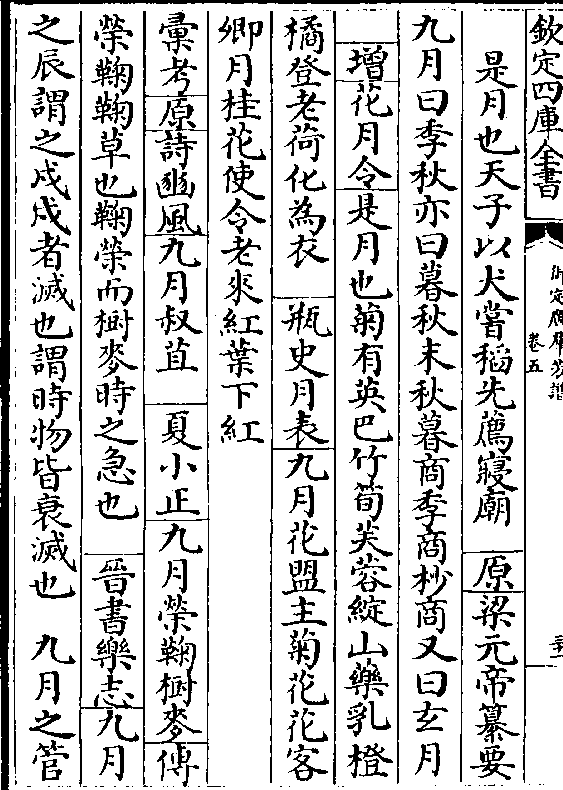 欽定四庫全書
御定佩文齋廣群芳譜
卷五
是月也天子以犬嘗稻先薦寢廟 原梁元帝纂要
九月曰季秋亦曰暮秋末秋暮商季商杪商又曰玄月
增花月令是月也菊有英巴竹筍芙蓉綻山藥乳橙
橘登老荷化為衣 瓶史月表九月花盟主菊花花客
卿月桂花使令老來紅葉下紅
彙考原詩豳風九月叔苴 夏小正九月榮鞠樹麥傳
榮鞠鞠草也鞠榮而樹麥時之急也 晉書樂志九月
之辰謂之戌戌者滅也謂時物皆衰滅也 九月之管